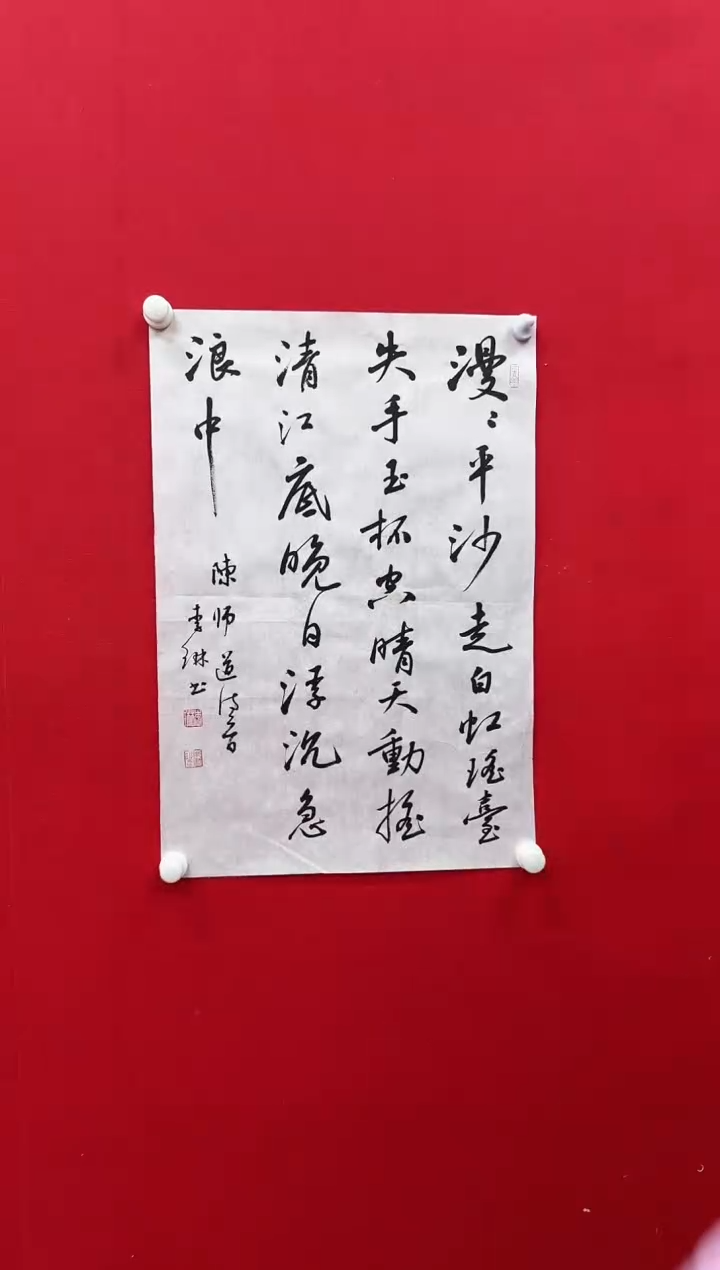 漫〻平沙走白虹瑤臺
失手玉杯空晴天動搖
清江底晚日浮沉急
浪中
陳師道詩一首
李琳书